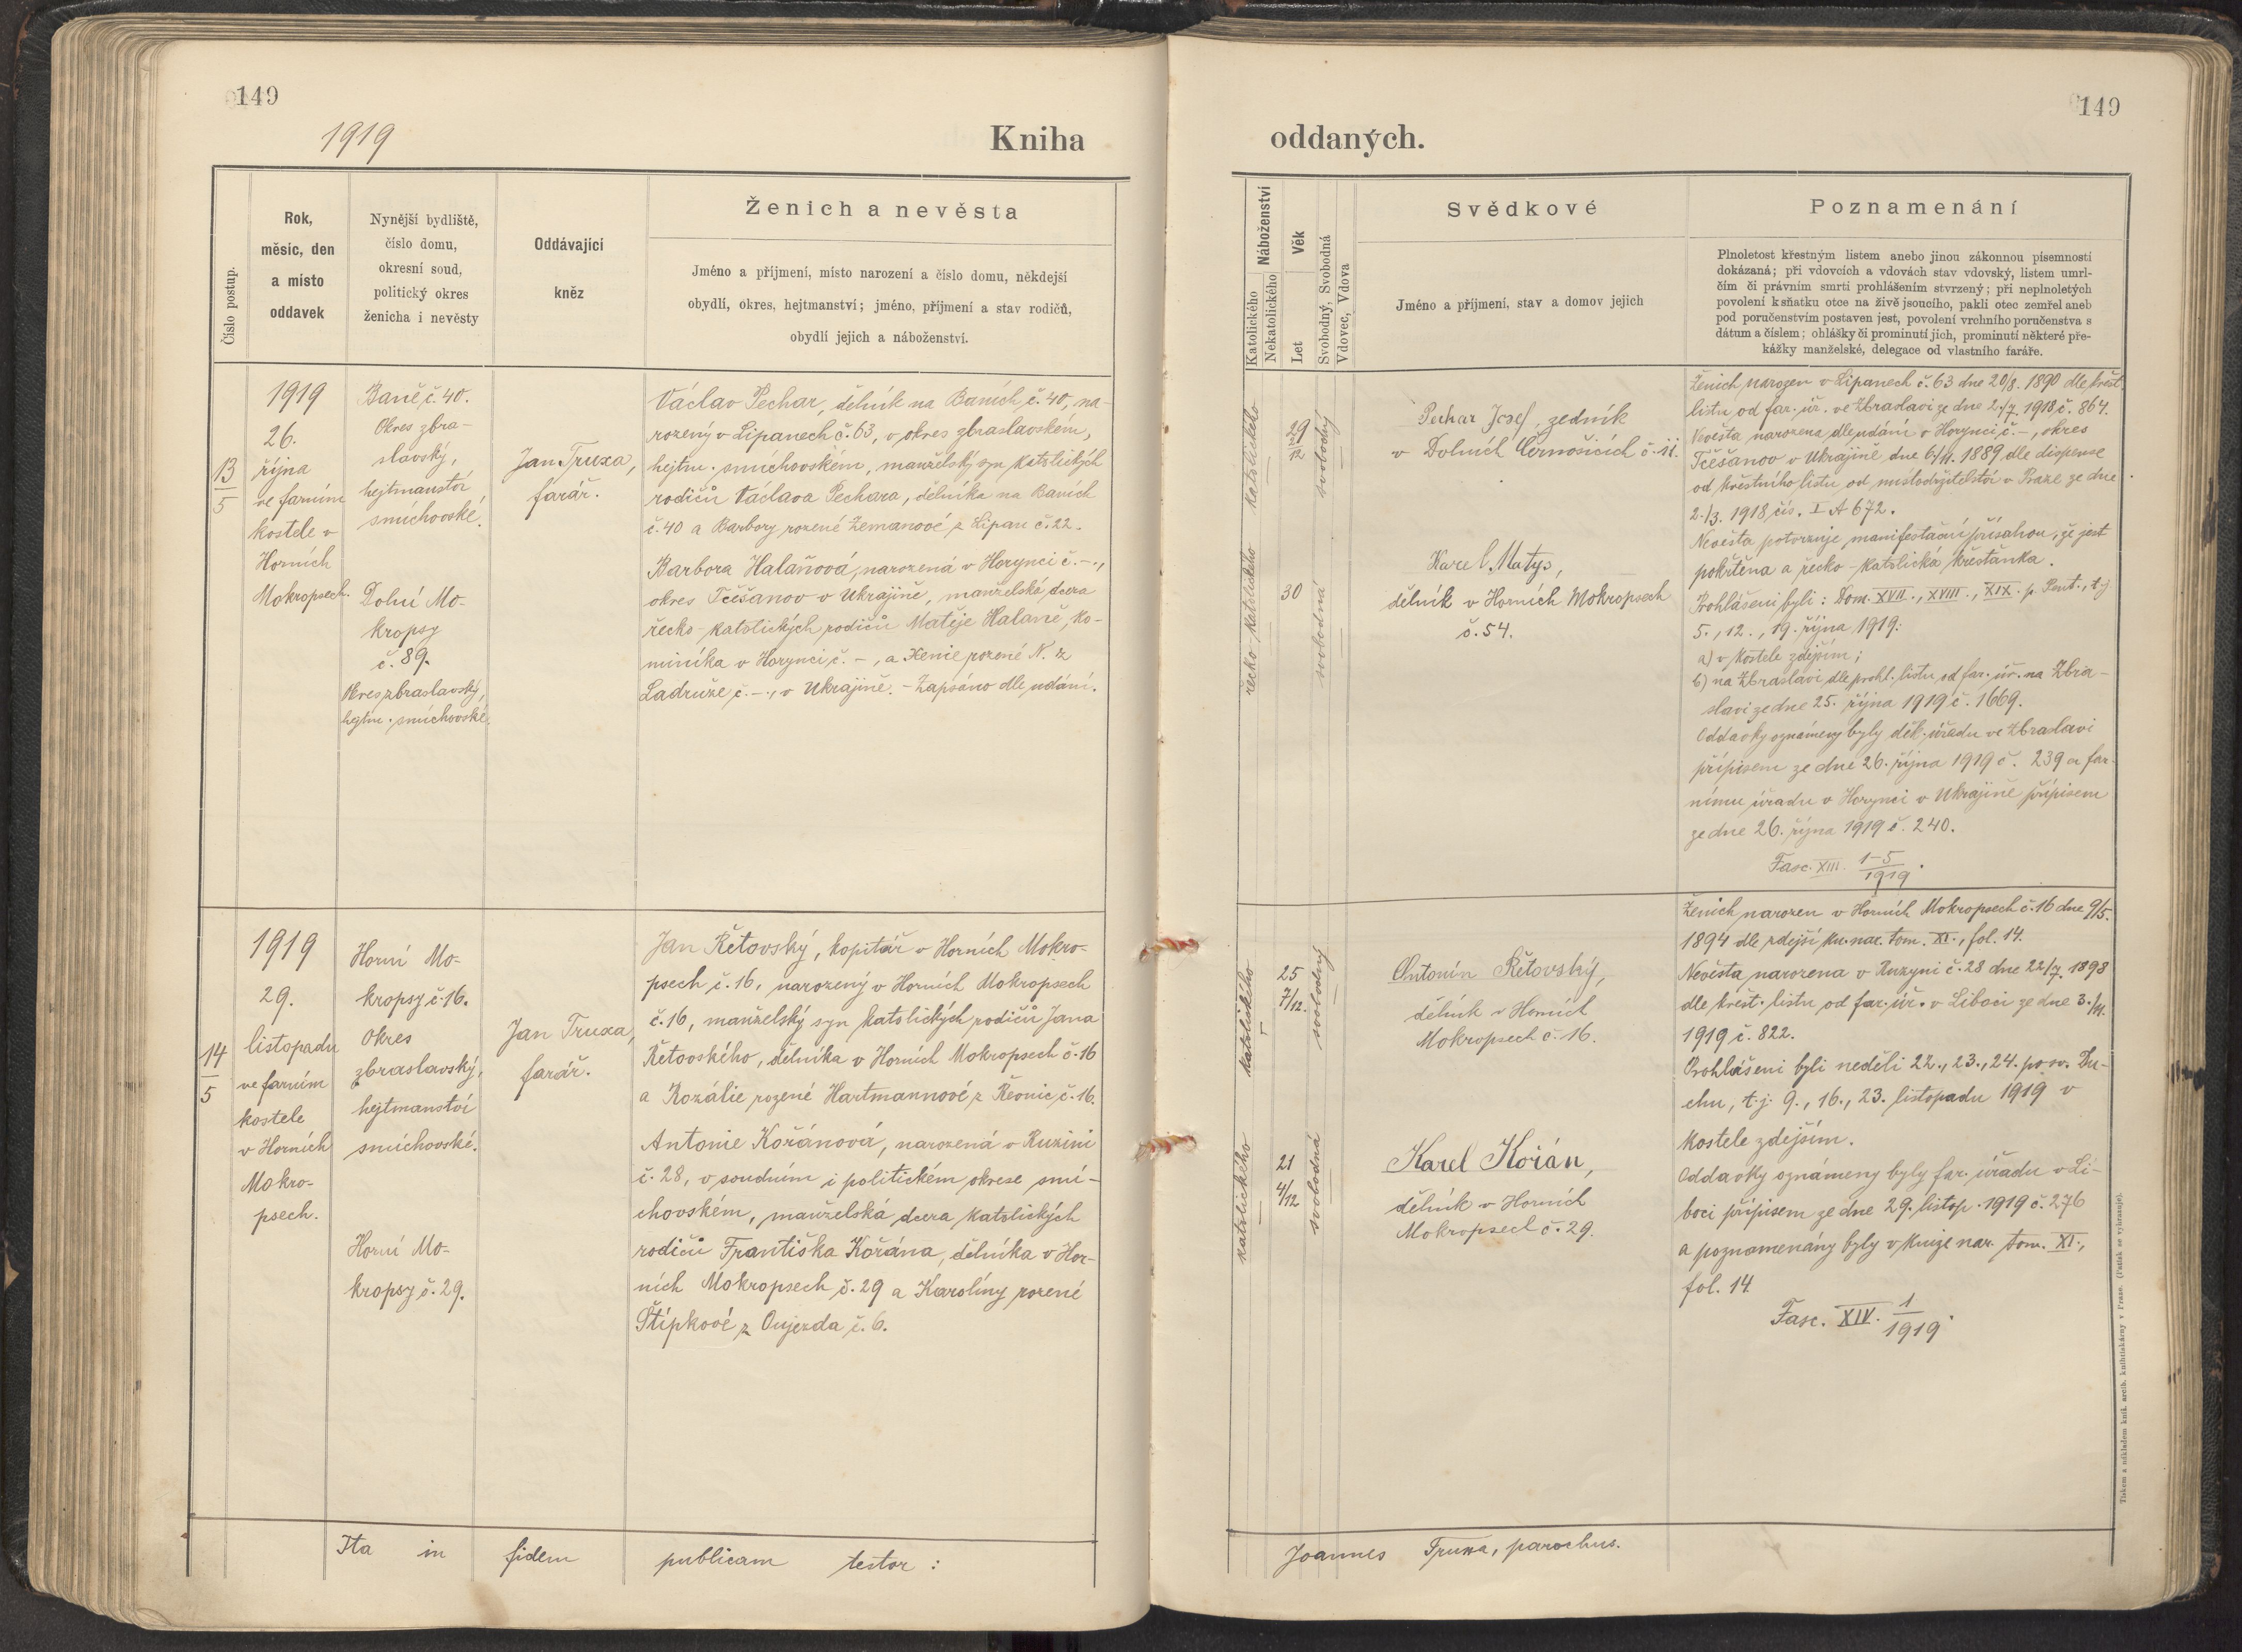 149
1919
Kniha
Číslo postup.
Rok,
měsíc, den
a místo
oddavek
Nynější bydliště,
číslo domu,
okresní soud,
politický okres
ženicha i nevěsty
Oddávající
kněz
Ženich a nevěsta
Jméno a příjmení, místo narození a číslo domu, někdejší
obydlí, okres, hejtmanství; jméno, příjmení a stav rodičů,
obydlí jejich a náboženství.
13
5
1919
26.
října
ve farním
kostele v
Horních
Mokropsech.
Baně č. 40.
Okres zbra-
slavský,
hejtmanství
smíchovské.
Dolní Mo-
kropsy
č. 89.
Okres zbraslavský,
hejtm. smíchovské.
Jan Truxa,
farář.
Václav Pechar, dělník na Baních č. 40, na-
rozený v Lipanech č. 63, v okres zbraslavském,
hejtm. smíchovském, manželský syn katolických
rodičů Václava Pechara, dělníka na Baních
č. 40 a Barbory rozené Zemanové z Lipan č. 22.
Barbora Halaňová, narozená v Horynci č. -.,
okres Tčěšanov v Ukrajině, manželská dcera
řecko-katolických rodičů Matěje Halaně, ko-
miníka v Horynci č. -, a Xenie rozené N. z
Ladruže č. -., v Ukrajině. - Zapsáno dle udání.
14
5
1919
29.
listopadu
ve farním
kostele
v Horních
Mokro-
psech.
Horní Mo-
kropsy č. 16.
Okres
zbraslavský,
hejtmanství
smíchovské.
Horní Mo-
kropsy č. 29.
Jan Truxa,
farář.
Jan Řetovský, kopitář v Horních Mokro-
psech č. 16, narozený v Horních Mokropsech
č. 16, manželský syn katolických rodičů Jana
Řetovského, dělníka v Horních Mokropsech č. 16
a Rozálie rozené Hartmannové z Řevnic č. 16.
Antonie Kořánová, narozená v Ruzini
č. 28, v soudním i politickém okrese smí-
chovském, manželská dcera katolických
rodičů Františka Kořána, dělníka v Hor-
ních Mokropsech č. 29 a Karolíny rozené
Štípkové z Oujezda č. 6.
Ita in fidem publicam testor:
149
oddaných.
Náboženství
Katolického
Nekatolického
Věk
Let
Svobodný, Svobodná
Vdovec, Vdova
Svědkové
Jméno a příjmení, stav a domov jejich
Poznamenání
Plnoletost křestným listem anebo jinou zákonnou písemností
dokázaná; při vdovcích a vdovách stav vdovský, listem úmrt-
čím či právním smrti prohlášením stvrzený; při neplnoletých
povolení k sňatku otce na živě jsoucího, pakli otec zemřel aneb
pod poručenstvím postaven jest, povolení vrchního poručenstva s
dátum a číslem; ohlášky či prominutí jich, prominutí některé pře-
kážky manželské, delegace od vlastního faráře.
katolického
29
2
12
svobodný
řecko-katolického
30
svobodná
Pechar Josef, zedník
v Dolních Černošicích č. 11.
Karel Matys,
dělník v Horních Mokropsech
č. 54.
Ženich narozen v Lipanech č. 63 dne 20/8. 1890 dle křest.
listu od far. úř. ve Zbraslavi ze dne 2./7. 1918 č. 864.
Nevěsta narozena dle udání v Horynci č. -, okres
Tčěšanov v Ukrajině dne 6./11. 1889 dle dispense
od křestního listu od místodržitelství v Praze ze dne
2./3. 1918 čís. I A 672.
Nevěsta potvrzuje manifestační přísahou, že jest
pokřtěna a řecko-katolická křesťanka.
Prohlášeni byli: Dom. XVII., XVIII., XIX. p. Pent., t. j.
5., 12., 19. října 1919:
a) v kostele zdejším;
b) na Zbraslavi dle prohl. listu od far. úř. na Zbra-
slavi ze dne 25. října 1919 č. 1669.
Oddavky oznámeny byly děk. úřadu ve Zbraslavi
přípisem ze dne 26. října 1919 č. 239 a far-
nímu úřadu v Horynci v Ukrajině přípisem
ze dne 26. října 1919 č. 240.
Fasc. XIII. 1-5
1919.
katolického
25
7/12.
svobodný
katolického
21
4/12
svobodná
Antonín Řetovský,
dělník v Horních
Mokropsech č. 16.
Karel Kořán,
dělník v Horních
Mokropsech č. 29.
Ženich narozen v Horních Mokropsech č. 16 dne 9/5.
1894 dle zdejší kn. nar. tom. XI., fol. 14.
Nevěsta narozena v Ruzyni č. 28 dne 22/7. 1898
dle křest. listu od far. úř. v Liboci ze dne 3./11.
1919 č. 822.
Prohlášeni byli neděli 22., 23., 24. po sv. Du-
chu, t. j. 9., 16., 23. listopadu 1919 v
kostele zdejším.
Oddavky oznámeny byly far. úřadu v Li-
boci přípisem ze dne 29. listop. 1919 č. 276
a poznamenány byly v knize nar. tom. XI.,
fol. 14
Fasc. XIV. 1
1919.
Joannes Truxa, parochus.
Tiskem a nákladem kníž. arcib. knihtiskárny v Praze. (Patisk se vyhrazuje).